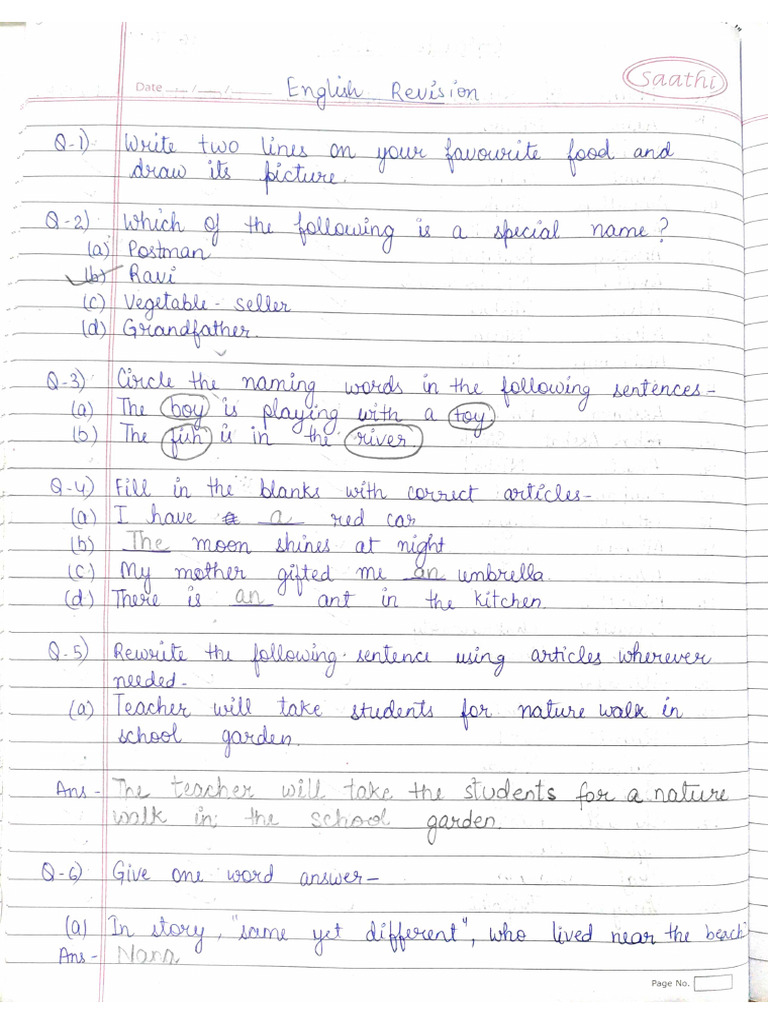 Date __/__/____ English Revision saathi
Q-1) Write two lines on your favourite food and
draw its picture.
Q-2) Which of the following is a special name?
(a) Postman
(b) Ravi
(c) Vegetable-seller
(d) Grandfather.
Q-3) Circle the naming words in the following sentences-
(a) The boy is playing with a toy
(b) The fish is in the river.
Q-4) Fill in the blanks with correct articles-
(a) I have a red car
(b) The moon shines at night
(c) My mother gifted me an umbrella.
(d) There is an ant in the kitchen.
Q-5) Rewrite the following sentence using articles wherever
needed-
(a) Teacher will take students for nature walk in
school garden.
Ans- The teacher will take the students for a nature
walk in the school garden.
Q-6) Give one word answer-
(a) In story, "same yet different", who lived near the beach
Ans-
Page No.